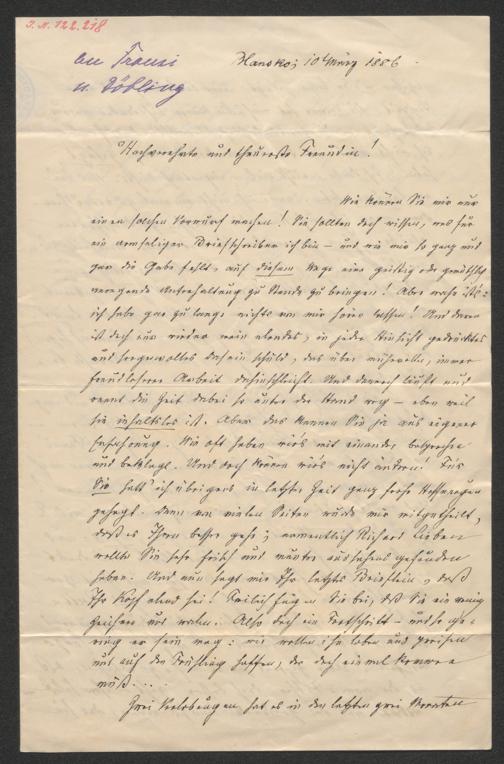 J. N. 122.218
an Franzi
u. Döbling
Hansko; 10 März 1886.
Hochverehrte und theuerste Freundin!
Wie können Sie mir nur
einen solchen Vorwurf machen! Sie sollten doch wissen, was für
ein armseliger Briefschreiber ich bin – und wie mir so ganz und
gar die Gabe fehlt, auf diesem Wege eine geistig oder gemüthlich
anregende Unterhaltung zu Stande zu bringen! Aber wahr ist's:
ich habe gar zu lange nichts von mir hören lassen! Und daran
ist doch nur wieder mein elendes, in jeder Hinsicht gedrücktes
und sorgenvolles Dasein schuld, das über mühevoller, immer
freudloserer Arbeit dahinschleicht. Und danach läuft und
rennt die Zeit dabei so unter der Hand weg – eben weil
sie inhaltslos ist. Aber das kennen Sie ja aus eigener
Erfahrung. Wie oft haben wir's mit einander besprochen
und beklagt. Und doch können wir's nicht ändern! Für
Sie hatt' ich übrigens in letzter Zeit ganz frohe Hoffnungen
gehegt. Denn von vielen Seiten wurde mir mitgetheilt,
daß es Ihnen besser gehe; namentlich Richard Lieben
wollte Sie sehr frisch und munter aussehend gefunden
haben. Und nun sagt mir Ihr letztes Brieflein, daß
Ihr Kopf elend sei! Freilich fügen Sie bei, daß Sie ein wenig
zeichnen und malen. Also doch ein Fortschritt – und so ge-
ring er sein mag: wir wollen ihn loben und preisen
und auf den Frühling hoffen, der doch einmal kommen
muß. . . .
Zwei Verlobungen hat es in den letzten zwei Monaten